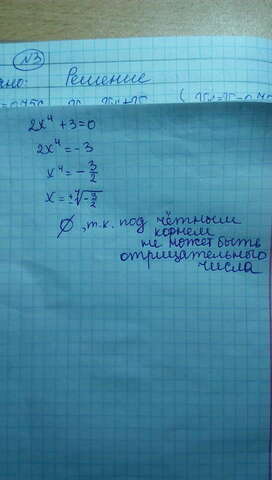 №3
ано: Решение
2x⁴+3=0
2x⁴=-3
x⁴=-3/2
x=±⁴√-3/2
∅, т.к. под чётным
корнем
не может быть
отрицательного
числа